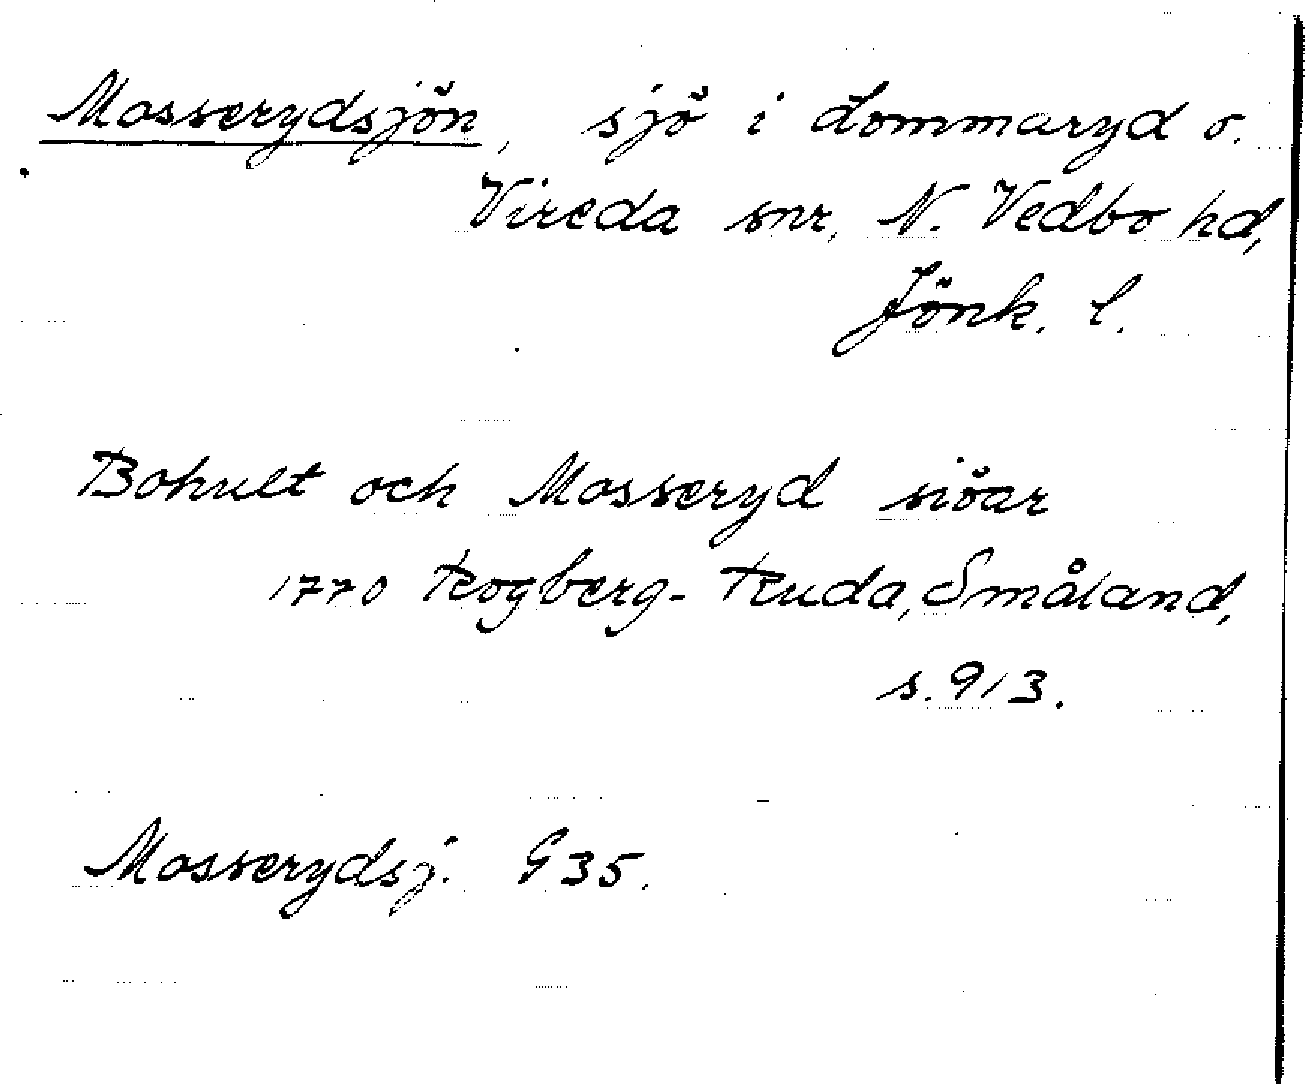 Mosserydsjön, sjö i Lommaryd o.
Vireda snr, N. Vedbo hd,
Jönk. l.
Bohult och Mosseryd siöar
1770 Rogberg-Ruda, Småland,
s. 913.
Mosserydsj. G 35.